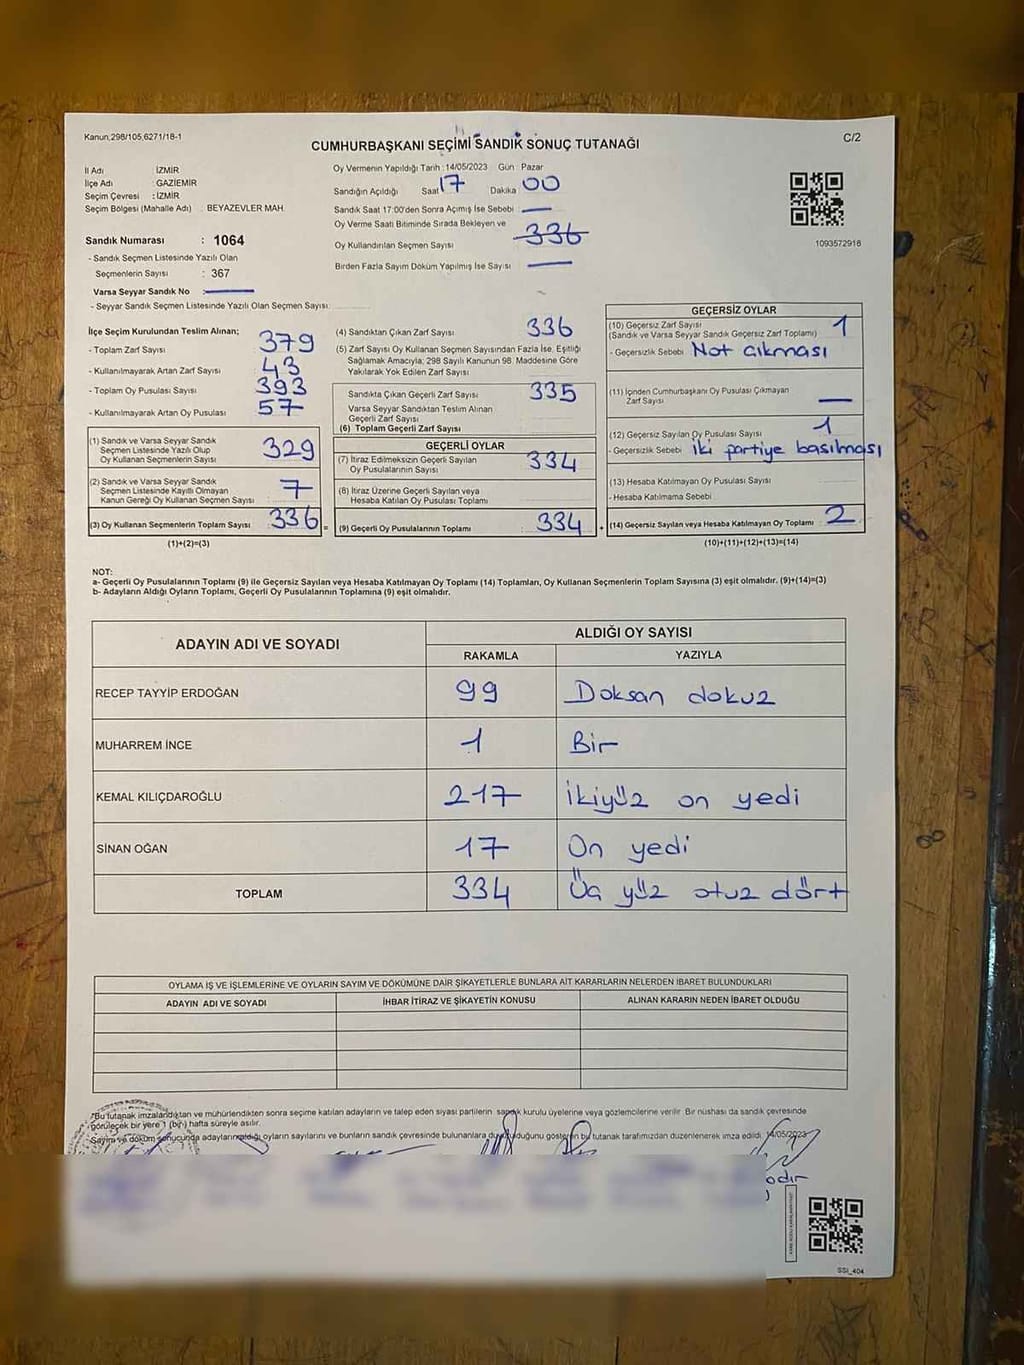 Kanun:298/105,6271/18-1
C/2
CUMHURBAŞKANI SEÇİMİ SANDIK SONUÇ TUTANAĞI
İl Adı İZMİR
İlçe Adı : GAZİEMİR
Seçim Çevresi : İZMİR
Seçim Bölgesi (Mahalle Adı) : BEYAZEVLER MAH.
Sandık Numarası : 1064
- Sandık Seçmen Listesinde Yazılı Olan
Seçmenlerin Sayısı : 367
Varsa Seyyar Sandık No :
- Seyyar Sandık Seçmen Listesinde Yazılı Olan Seçmen Sayısı:
Oy Vermenin Yapıldığı Tarih : 14/05/2023 Gün : Pazar
Sandığın Açıldığı Saat 17 Dakika 00
Sandık Saat 17:00'den Sonra Açımış İse Sebebi :
Oy Verme Saati Bitiminde Sırada Bekleyen ve
Oy Kullandırılan Seçmen Sayısı 336
Birden Fazla Sayım Döküm Yapılmış İse Sayısı
1093572918
İlçe Seçim Kurulundan Teslim Alınan;
- Toplam Zarf Sayısı 379
- Kullanılmayarak Artan Zarf Sayısı 43
- Toplam Oy Pusulası Sayısı 393
- Kullanılmayarak Artan Oy Pusulası 57
(1) Sandık ve Varsa Seyyar Sandık
Seçmen Listesinde Yazılı Olup
Oy Kullanan Seçmenlerin Sayısı 329
(2) Sandık ve Varsa Seyyar Sandık
Seçmen Listesinde Kayıtlı Olmayan
Kanun Gereği Oy Kullanan Seçmen Sayısı 7
(3) Oy Kullanan Seçmenlerin Toplam Sayısı 336 =
(1)+(2)=(3)
(4) Sandıktan Çıkan Zarf Sayısı 336
(5) Zarf Sayısı Oy Kullanan Seçmen Sayısından Fazla İse, Eşitliği
Sağlamak Amacıyla, 298 Sayılı Kanunun 98. Maddesine Göre
Yakılarak Yok Edilen Zarf Sayısı
Sandıkta Çıkan Geçerli Zarf Sayısı 335
Varsa Seyyar Sandıktan Teslim Alınan
Geçerli Zarf Sayısı
(6) Toplam Geçerli Zarf Sayısı
GEÇERLİ OYLAR
(7) İtiraz Edilmeksizin Geçerli Sayılan
Oy Pusulalarının Sayısı 334
(8) İtiraz Üzerine Geçerli Sayılan veya
Hesaba Katılan Oy Pusulası Toplamı
(9) Geçerli Oy Pusulalarının Toplamı 334 +
GEÇERSİZ OYLAR
(10) Geçersiz Zarf Sayısı
(Sandık ve Varsa Seyyar Sandık Geçersiz Zarf Toplamı) 1
- Geçersizlik Sebebi Not çıkması
(11) İçinden Cumhurbaşkanı Oy Pusulası Çıkmayan
Zarf Sayısı
(12) Geçersiz Sayılan Oy Pusulası Sayısı 1
- Geçersizlik Sebebi İki partiye basılması
(13) Hesaba Katılmayan Oy Pusulası Sayısı
- Hesaba Katılmama Sebebi
(14) Geçersiz Sayılan veya Hesaba Katılmayan Oy Toplamı : 2
(10)+(11)+(12)+(13)=(14)
NOT:
a- Geçerli Oy Pusulalarının Toplamı (9) ile Geçersiz Sayılan veya Hesaba Katılmayan Oy Toplamı (14) Toplamları, Oy Kullanan Seçmenlerin Toplam Sayısına (3) eşit olmalıdır. (9)+(14)=(3)
b- Adayların Aldığı Oyların Toplamı, Geçerli Oy Pusulalarının Toplamına (9) eşit olmalıdır.
ADAYIN ADI VE SOYADI
ALDIĞI OY SAYISI
RAKAMLA YAZIYLA
RECEP TAYYİP ERDOĞAN 99 Doksan dokuz
MUHARREM İNCE 1 Bir
KEMAL KILIÇDAROĞLU 217 İkiyüz on yedi
SİNAN OĞAN 17 On yedi
TOPLAM 334 Üç yüz otuz dört
OYLAMA İŞ VE İŞLEMLERİNE VE OYLARIN SAYIM VE DÖKÜMÜNE DAİR ŞİKAYETLERLE BUNLARA AİT KARARLARIN NELERDEN İBARET BULUNDUKLARI
ADAYIN ADI VE SOYADI İHBAR İTİRAZ VE ŞİKAYETİN KONUSU ALINAN KARARIN NEDEN İBARET OLDUĞU
"Bu tutanak imzalandıktan ve mühürlendikten sonra seçime katılan adayların ve talep eden siyasi partilerin sandık kurulu üyelerine veya gözlemcilerine verilir. Bir nüshası da sandık çevresinde
görülecek bir yere 1 (bir) hafta süreyle asılır.
Sayım ve döküm sonucunda adayların aldığı oyların sayılarını ve bunların sandık çevresinde bulunanlara duyurulduğunu gösteren bu tutanak tarafımızdan düzenlenerek imza edildi. 14/05/2023
SSI_404